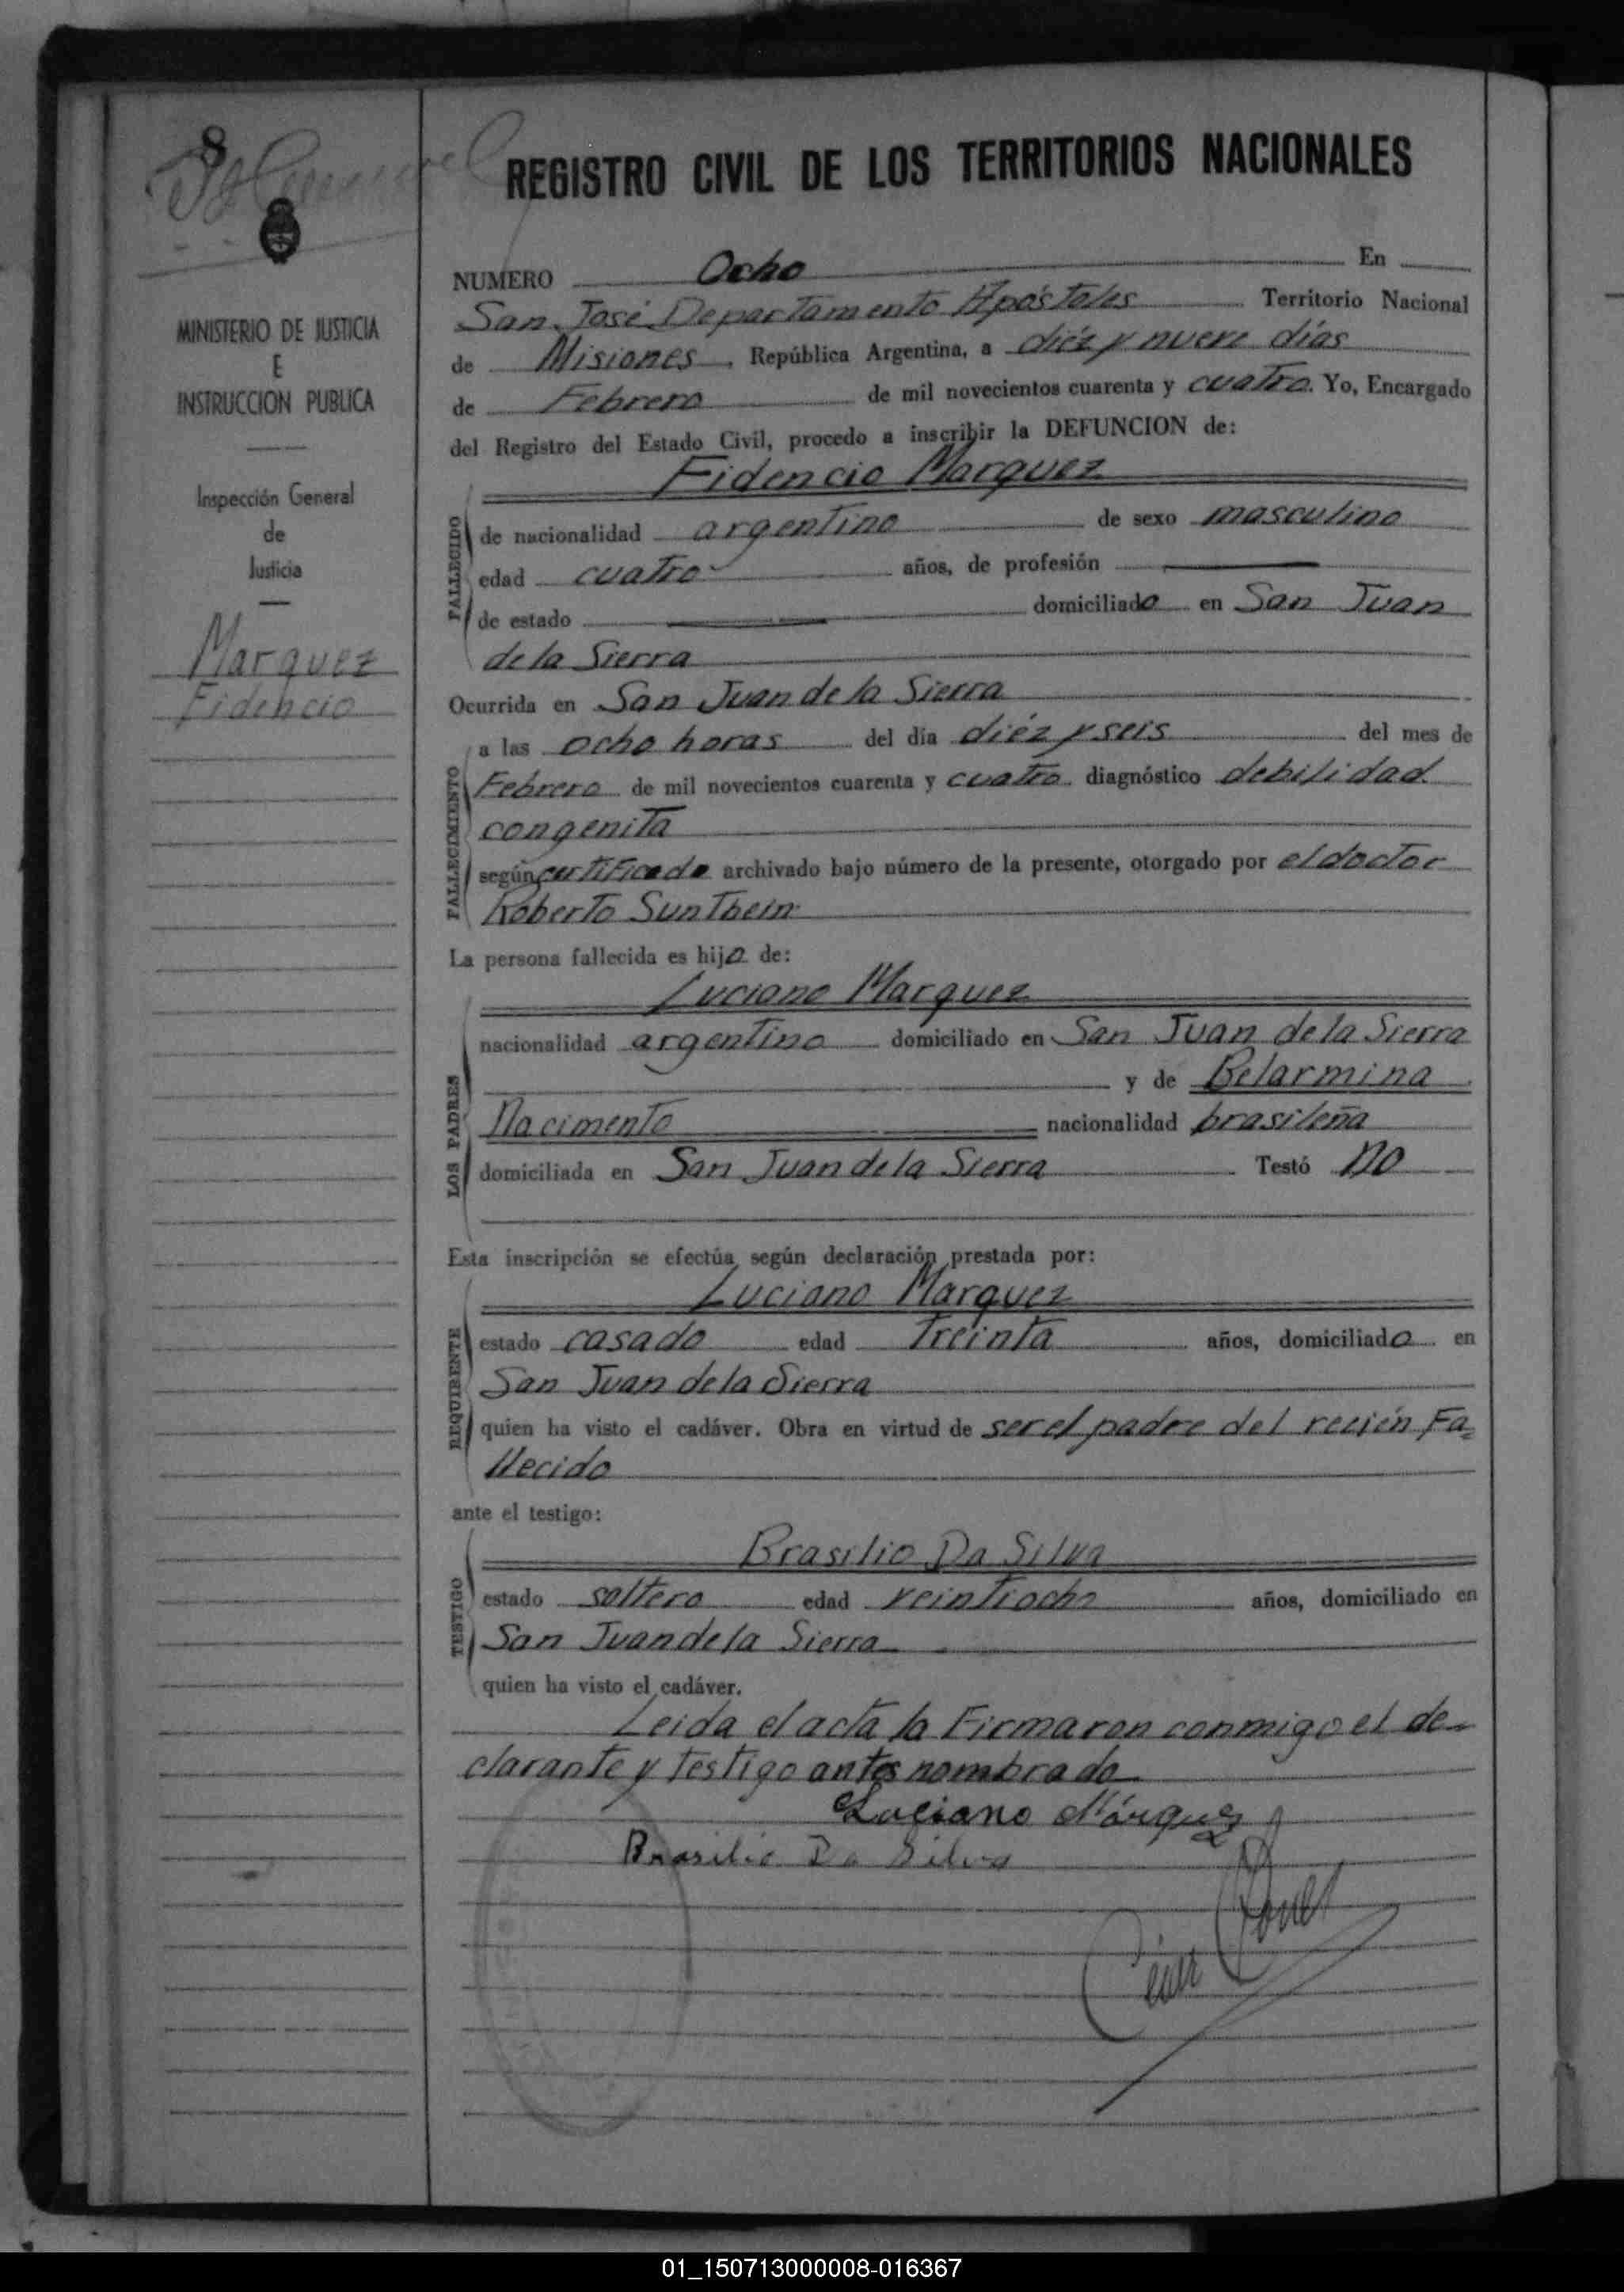 8
REGISTRO CIVIL DE LOS TERRITORIOS NACIONALES
MINISTERIO DE JUSTICIA
E
INSTRUCCION PUBLICA
Inspección General
de
Justicia
Marquez
Fidencio
NUMERO Ocho En
San José Departamento Apóstoles Territorio Nacional
de Misiones, República Argentina, a diéz y nueve días
de Febrero de mil novecientos cuarenta y cuatro. Yo, Encargado
del Registro del Estado Civil, procedo a inscribir la DEFUNCION de:
Fidencio Marquez
FALLECIDO
de nacionalidad argentino de sexo masculino
edad cuatro años, de profesión
de estado domiciliado en San Juan
de la Sierra
Ocurrida en San Juan de la Sierra
FALLECIMIENTO
a las ocho horas del día diéz y seis del mes de
Febrero de mil novecientos cuarenta y cuatro diagnóstico debilidad
congenita
según certificado archivado bajo número de la presente, otorgado por el doctor
Roberto
La persona fallecida es hijo de:
LOS PADRES
Luciano Marquez
nacionalidad argentino domiciliado en San Juan de la Sierra
y de Belarmina
Nacimento nacionalidad brasileña
domiciliada en San Juan de la Sierra Testó no
Esta inscripción se efectúa según declaración prestada por:
REQUIRENTE
Luciano Marquez
estado casado edad Treinta años, domiciliado en
San Juan de la Sierra
quien ha visto el cadáver. Obra en virtud de ser el padre del recién Fa=
llecido
ante el testigo:
TESTIGO
Brasilio Da Silva
estado soltero edad veintiocho años, domiciliado en
San Juan de la Sierra
quien ha visto el cadáver.
Leida el acta la Firmaron conmigo el de-
clarante y testigo antes nombrado
Luciano Márquez
Brasilio Da Silva
01_150713000008-016367